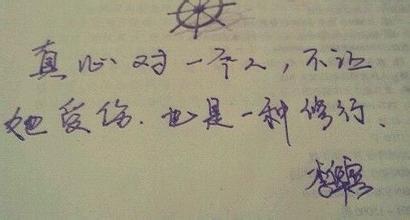 真心对一个人，不让
她受伤．也是一种修行．